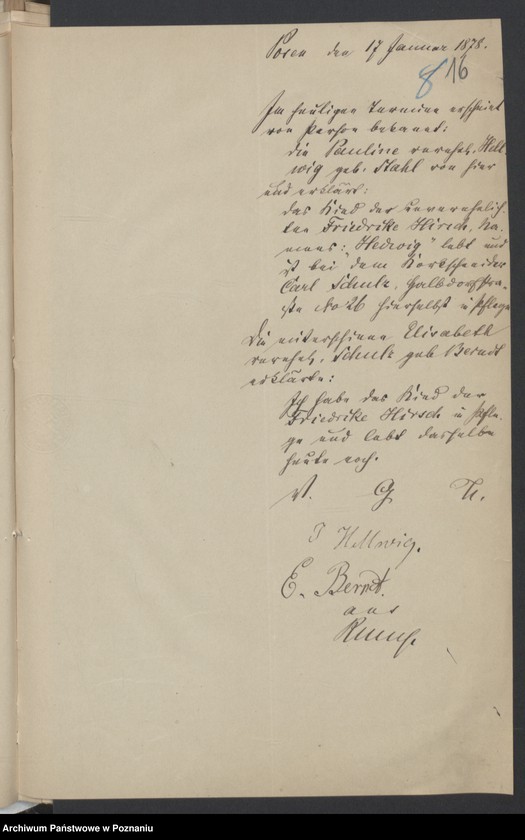 Posen den 17 Januar 1878.
8 16
Im heutigen Termine erscheint
von Person bekannt:
die Pauline verehel. Hell-
wig geb. Stahl von hier
und erklärt:
das Kind der unverehelich-
ten Friedrike Hirsch, Na-
mens: "Hedwig" lebt und
ist bei dem Korkschneider
Carl Schulz, Halbdorfstra-
ße No 26 hierselbst in Pflege
Die miterschienene Elisabeth
verehel. Schulz geb Berndt
erklärte:
Ich habe das Kind der
Friedrike Hirsch in Pfle-
ge und lebt dasselbe
heute noch.
V. G. U.
P Hellwig.
E. Berndt.
a u s